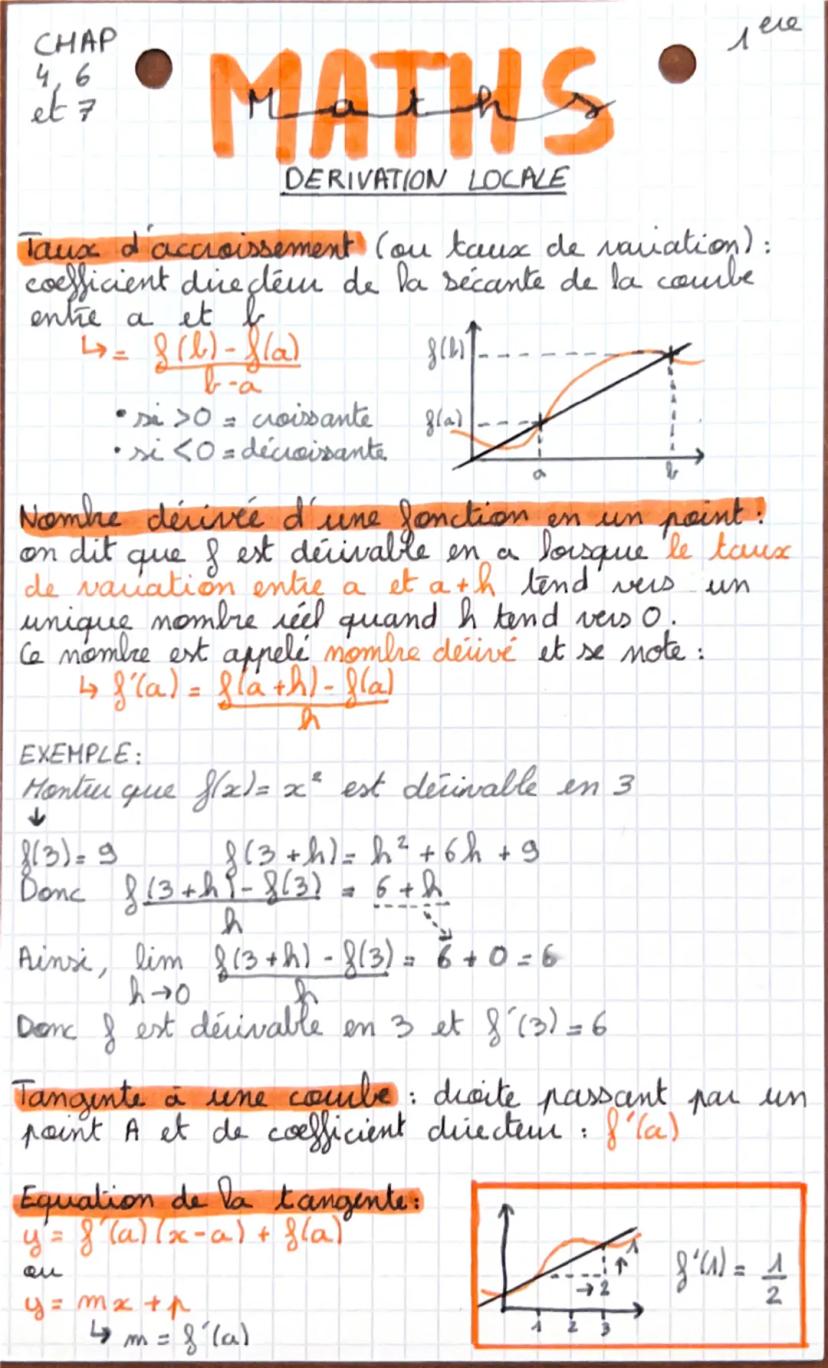 CHAP
4, 6
et 7
1ere
MATHS
Maths
DERIVATION LOCALE
Taux d'accroissement (ou taux de variation) :
coefficient directeur de la sécante de la courbe
entre a et b
↳ = f(b) - f(a)
b - a
• si >0 = croissante
• si <0 = décroissante
f(b)
f(a)
a b
Nombre dérivée d'une fonction en un point :
on dit que f est dérivable en a lorsque le taux
de variation entre a et a+h tend vers un
unique nombre réel quand h tend vers 0.
Ce nombre est appelé nombre dérivé et se note :
↳ f'(a) = f(a+h) - f(a)
h
EXEMPLE :
Montrer que f(x) = x² est dérivable en 3
↓
f(3) = 9 f(3+h) = h² + 6h + 9
Donc f(3+h) - f(3) = 6 + h
h
Ainsi, lim f(3+h) - f(3) = 6 + 0 = 6
h→0 h
Donc f est dérivable en 3 et f'(3) = 6
Tangente à une courbe : droite passant par un
point A et de coefficient directeur : f'(a)
Equation de la tangente :
y = f'(a)(x-a) + f(a)
ou
y = mx + p
↳ m = f'(a)
↑ 1
→ 2
1 2 3
f'(1) = 1
2